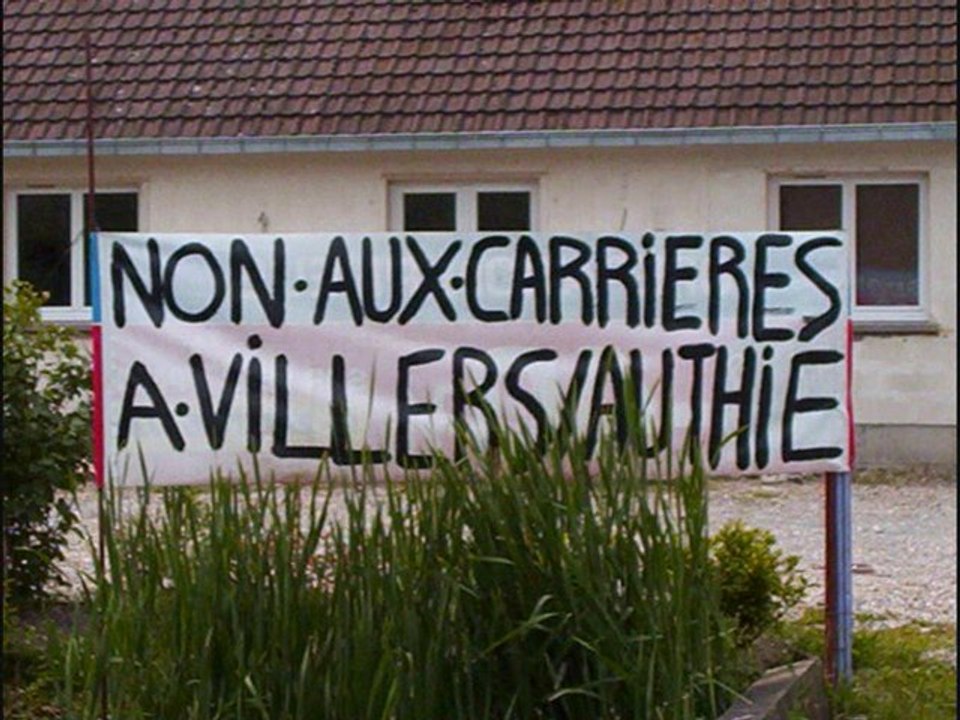 NON·AUX·CARRiERES
A·ViLLERS/AUTHiE